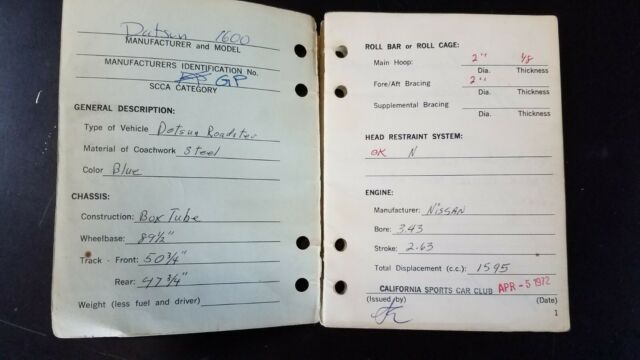 Datsun 1600
MANUFACTURER and MODEL
MANUFACTURERS IDENTIFICATION No.
GP
SCCA CATEGORY
GENERAL DESCRIPTION:
Type of Vehicle Datsun Roadster
Material of Coachwork Steel
Color Blue
CHASSIS:
Construction: Box Tube
Wheelbase: 89½"
Track - Front: 50 3/4"
Rear: 47 3/4"
Weight (less fuel and driver)
ROLL BAR or ROLL CAGE:
Main Hoop: 2" 1/8
Dia. Thickness
Fore/Aft Bracing 2"
Dia. Thickness
Supplemental Bracing
Dia. Thickness
HEAD RESTRAINT SYSTEM:
OK N
ENGINE:
Manufacturer: NISSAN
Bore: 3.43
Stroke: 2.63
Total Displacement (c.c.): 1595
CALIFORNIA SPORTS CAR CLUB APR - 5 1972
(Issued by) (Date)
1